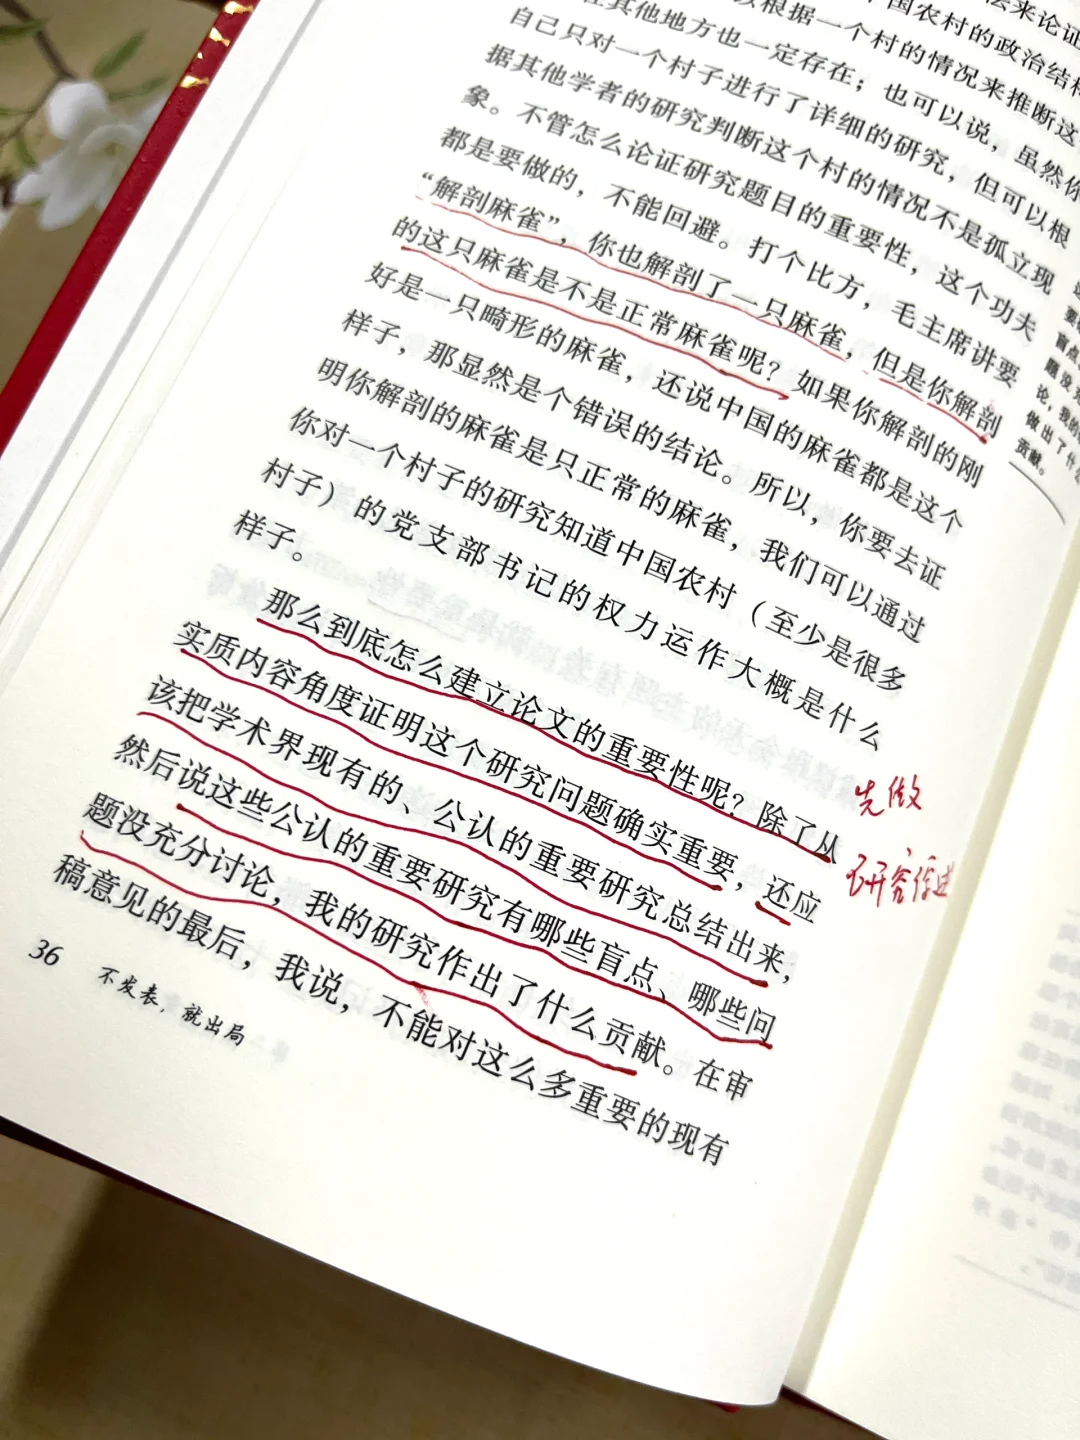 国农村的政治结构
在其他地方也一定存在；也可以说，虽然你
根据一个村的情况来推断这
自己只对一个村子进行了详细的研究，但可以根
据其他学者的研究判断这个村的情况不是孤立现
象。不管怎么论证研究题目的重要性，这个功夫
都是要做的，不能回避。打个比方，毛主席讲要
“解剖麻雀”，你也解剖了一只麻雀，但是你解剖
的这只麻雀是不是正常麻雀呢？如果你解剖的刚
好是一只畸形的麻雀，还说中国的麻雀都是这个
样子，那显然是个错误的结论。所以，你要去证
明你解剖的麻雀是只正常的麻雀，我们可以通过
你对一个村子的研究知道中国农村（至少是很多
村子）的党支部书记的权力运作大概是什么
样子。
那么到底怎么建立论文的重要性呢？除了从
实质内容角度证明这个研究问题确实重要，还应
该把学术界现有的、公认的重要研究总结出来，
然后说这些公认的重要研究有哪些盲点、哪些问
题没充分讨论，我的研究作出了什么贡献。在审
稿意见的最后，我说，不能对这么多重要的现有
先做
研究综述
36 不发表，就出局
盲点
论，我的
做出了什
贡献。